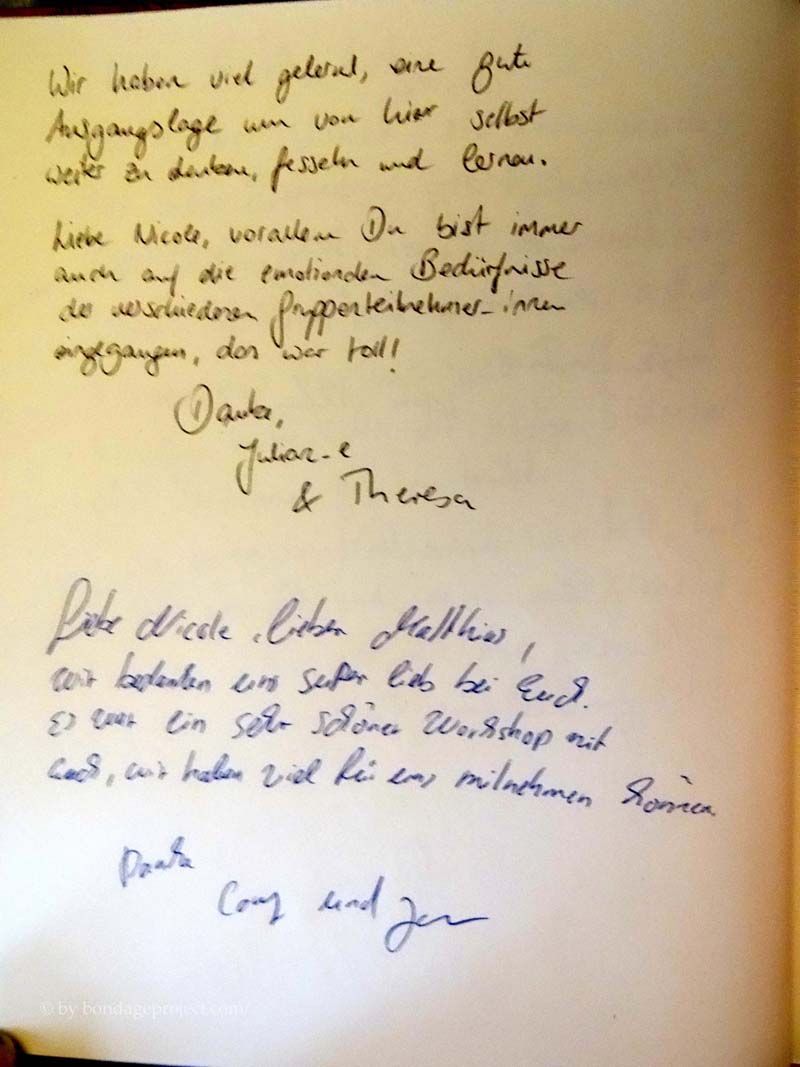 Wir haben viel gelernt, eine gute
Ausgangslage um von hier selbst
weiter zu denken, fesseln und lernen.
Liebe Nicole, vorallem Du bist immer
auch auf die emotionalen Bedürfnisse
der verschiedenen Gruppenteilnehmer_innen
eingegangen, das war toll!
Danke,
Julian_e
& Theresa
Liebe Nicole, lieber Matthias,
wir bedanken uns super lieb bei Euch.
Es war ein sehr schöner Workshop mit
euch, wir haben viel für uns mitnehmen können
Danke
und
© by bondageproject.com/